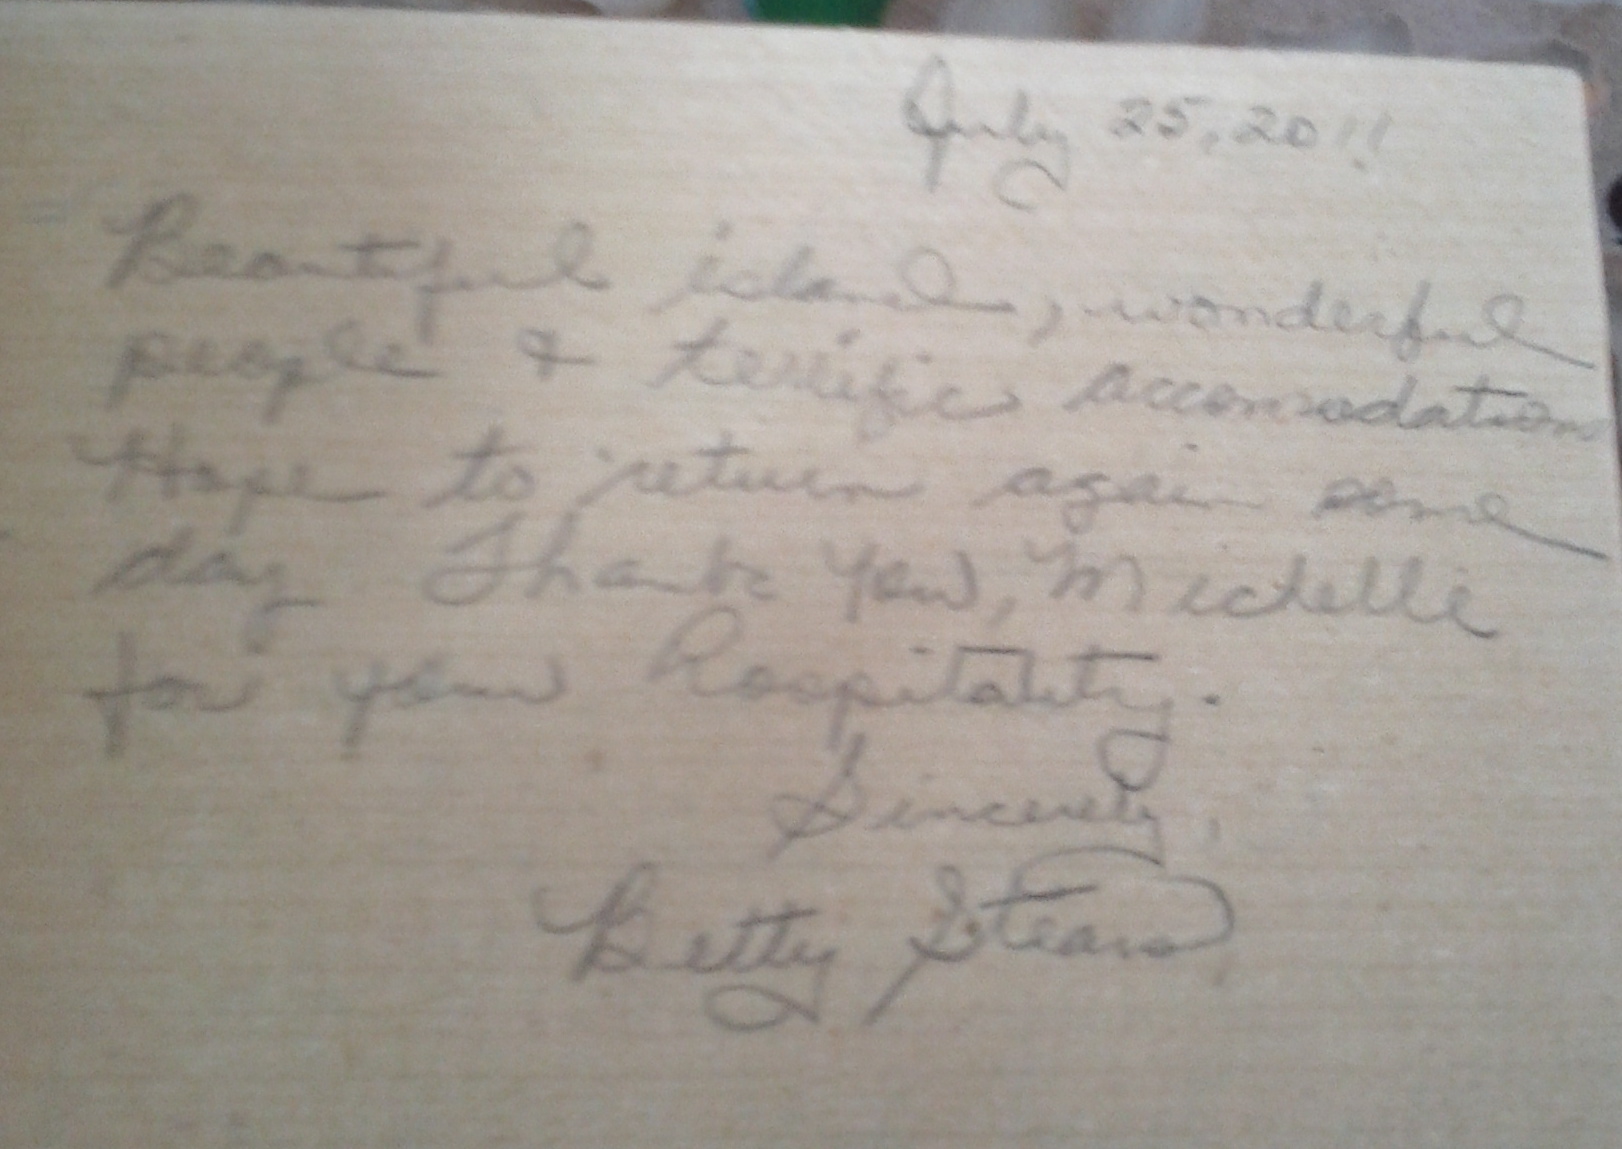 July 25, 2011
Beautiful island, wonderful
people & terrific accomodations
Hope to return again some
day. Thank You, Michelle
for your hospitality.
Sincerely,
Betty Stears